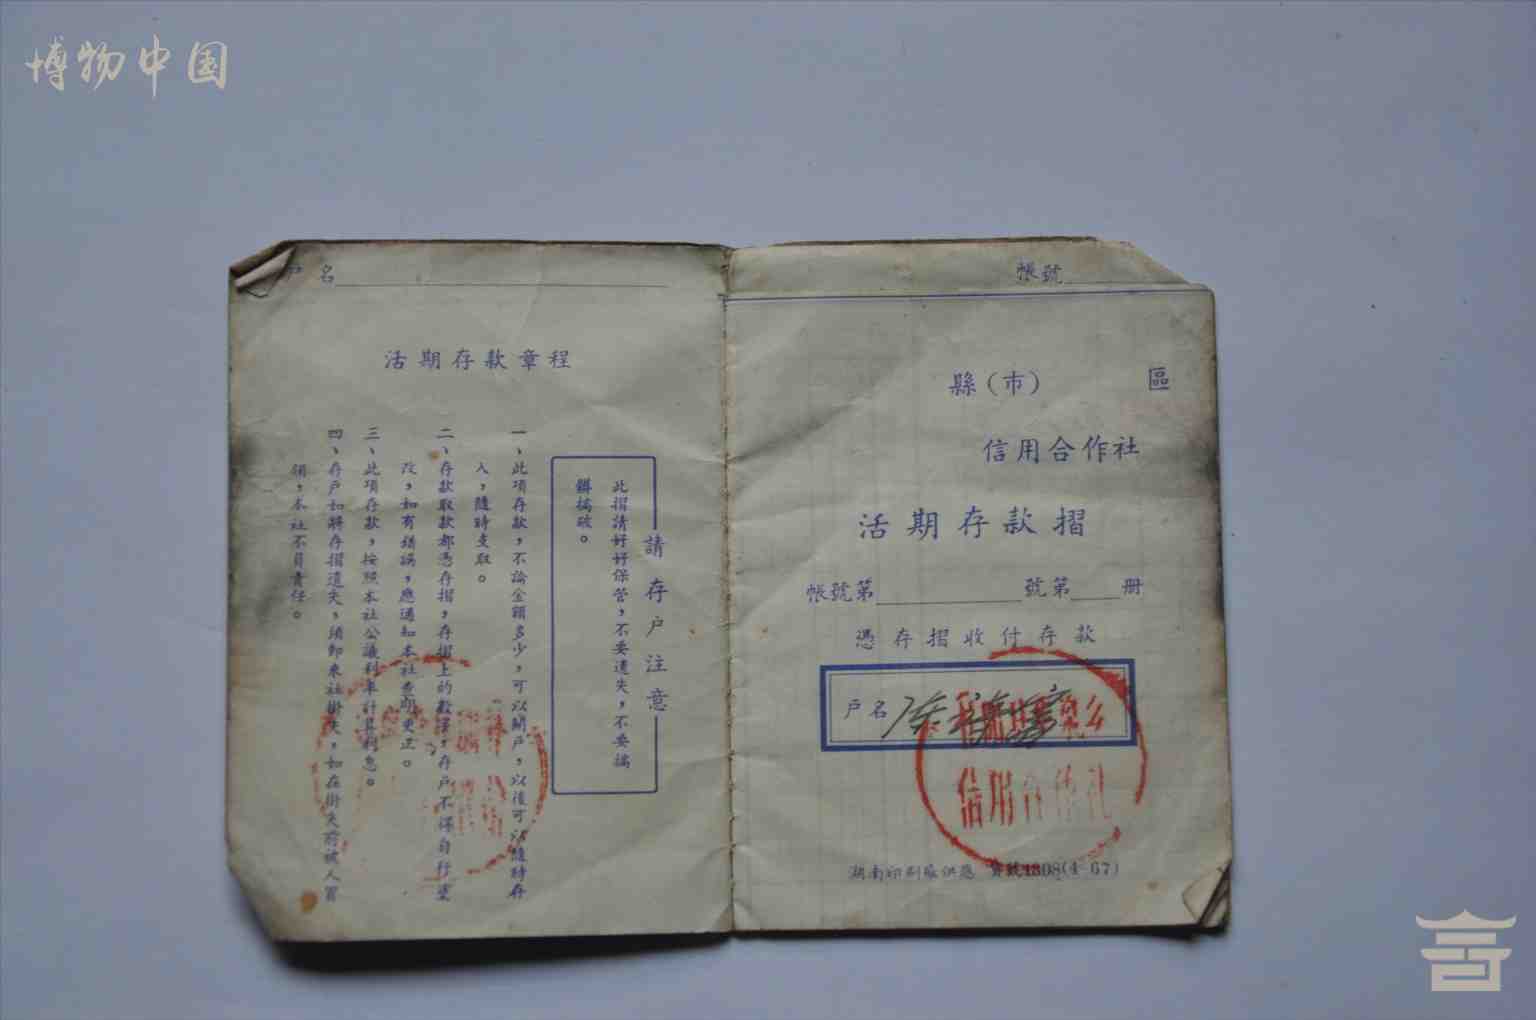 博物中国
户名
活期存款章程
請存户注意
此摺請好好保管，不要遺失，不要搞
髒搞破。
一、此項存款，不論金額多少，可以開户，以後可以隨時存
入，隨時支取。
二、存款取款都憑存摺，存摺上的數字，存戶不得自行塗
改，如有錯誤，應通知本社查明更正。
三、此項存款，按照本社公議利率計算利息。
四、存戶如將存摺遺失，須卽來社掛失，如在掛失前被人冒
領，本社不負責任。
帳號
縣(市) 區
信用合作社
活期存款摺
帳號第 號第 册
憑存摺收付存款
户名
信用合作社
湖南印刷廠供應 貨號1308(4-67)